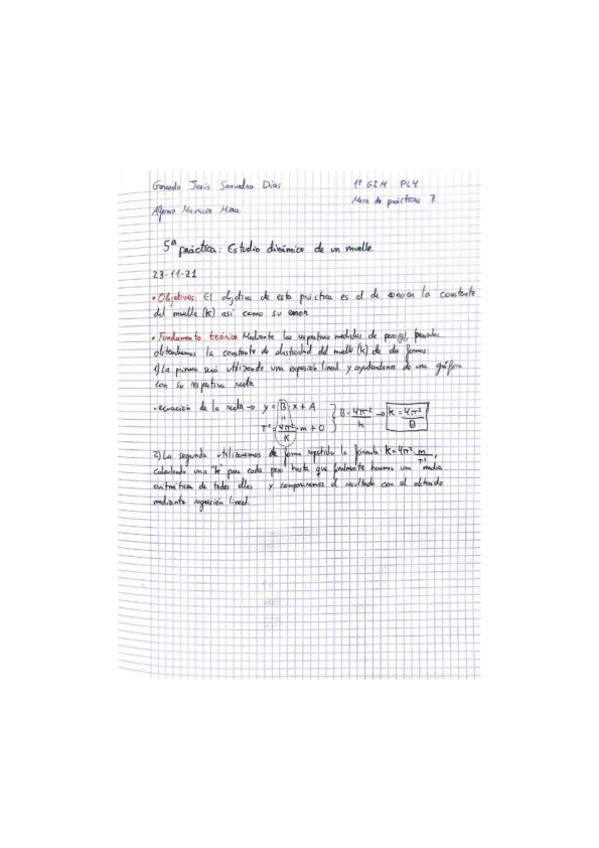 Jesús Díaz 1º GIM PL4
Alfonso Mauricio Mesa de prácticas 7
5ª práctica: Estudio dinámico de un muelle
23-11-21
• Objetivos: El objetivo de esta práctica es el de conocer la constante
del muelle (k) así como su error
• Fundamento teórico: Mediante las respectivas medidas de
obtendremos la constante de elasticidad del muelle (k) de dos formas
1) La primera será utilizando una regresión lineal y ayudándonos de una gráfica
con su respectiva recta
• ecuación de la recta → y = B · x + A
T² = 4π²/K · m + 0 } B = 4π²/k → k = 4π²/B
2) La segunda utilizaremos de forma repetida la fórmula K = 4π² · m/T²,
calculando una "k" para cada peso hasta que finalmente hacemos una media
aritmética de todas ellas y comparamos el resultado con el obtenido
mediante regresión lineal.